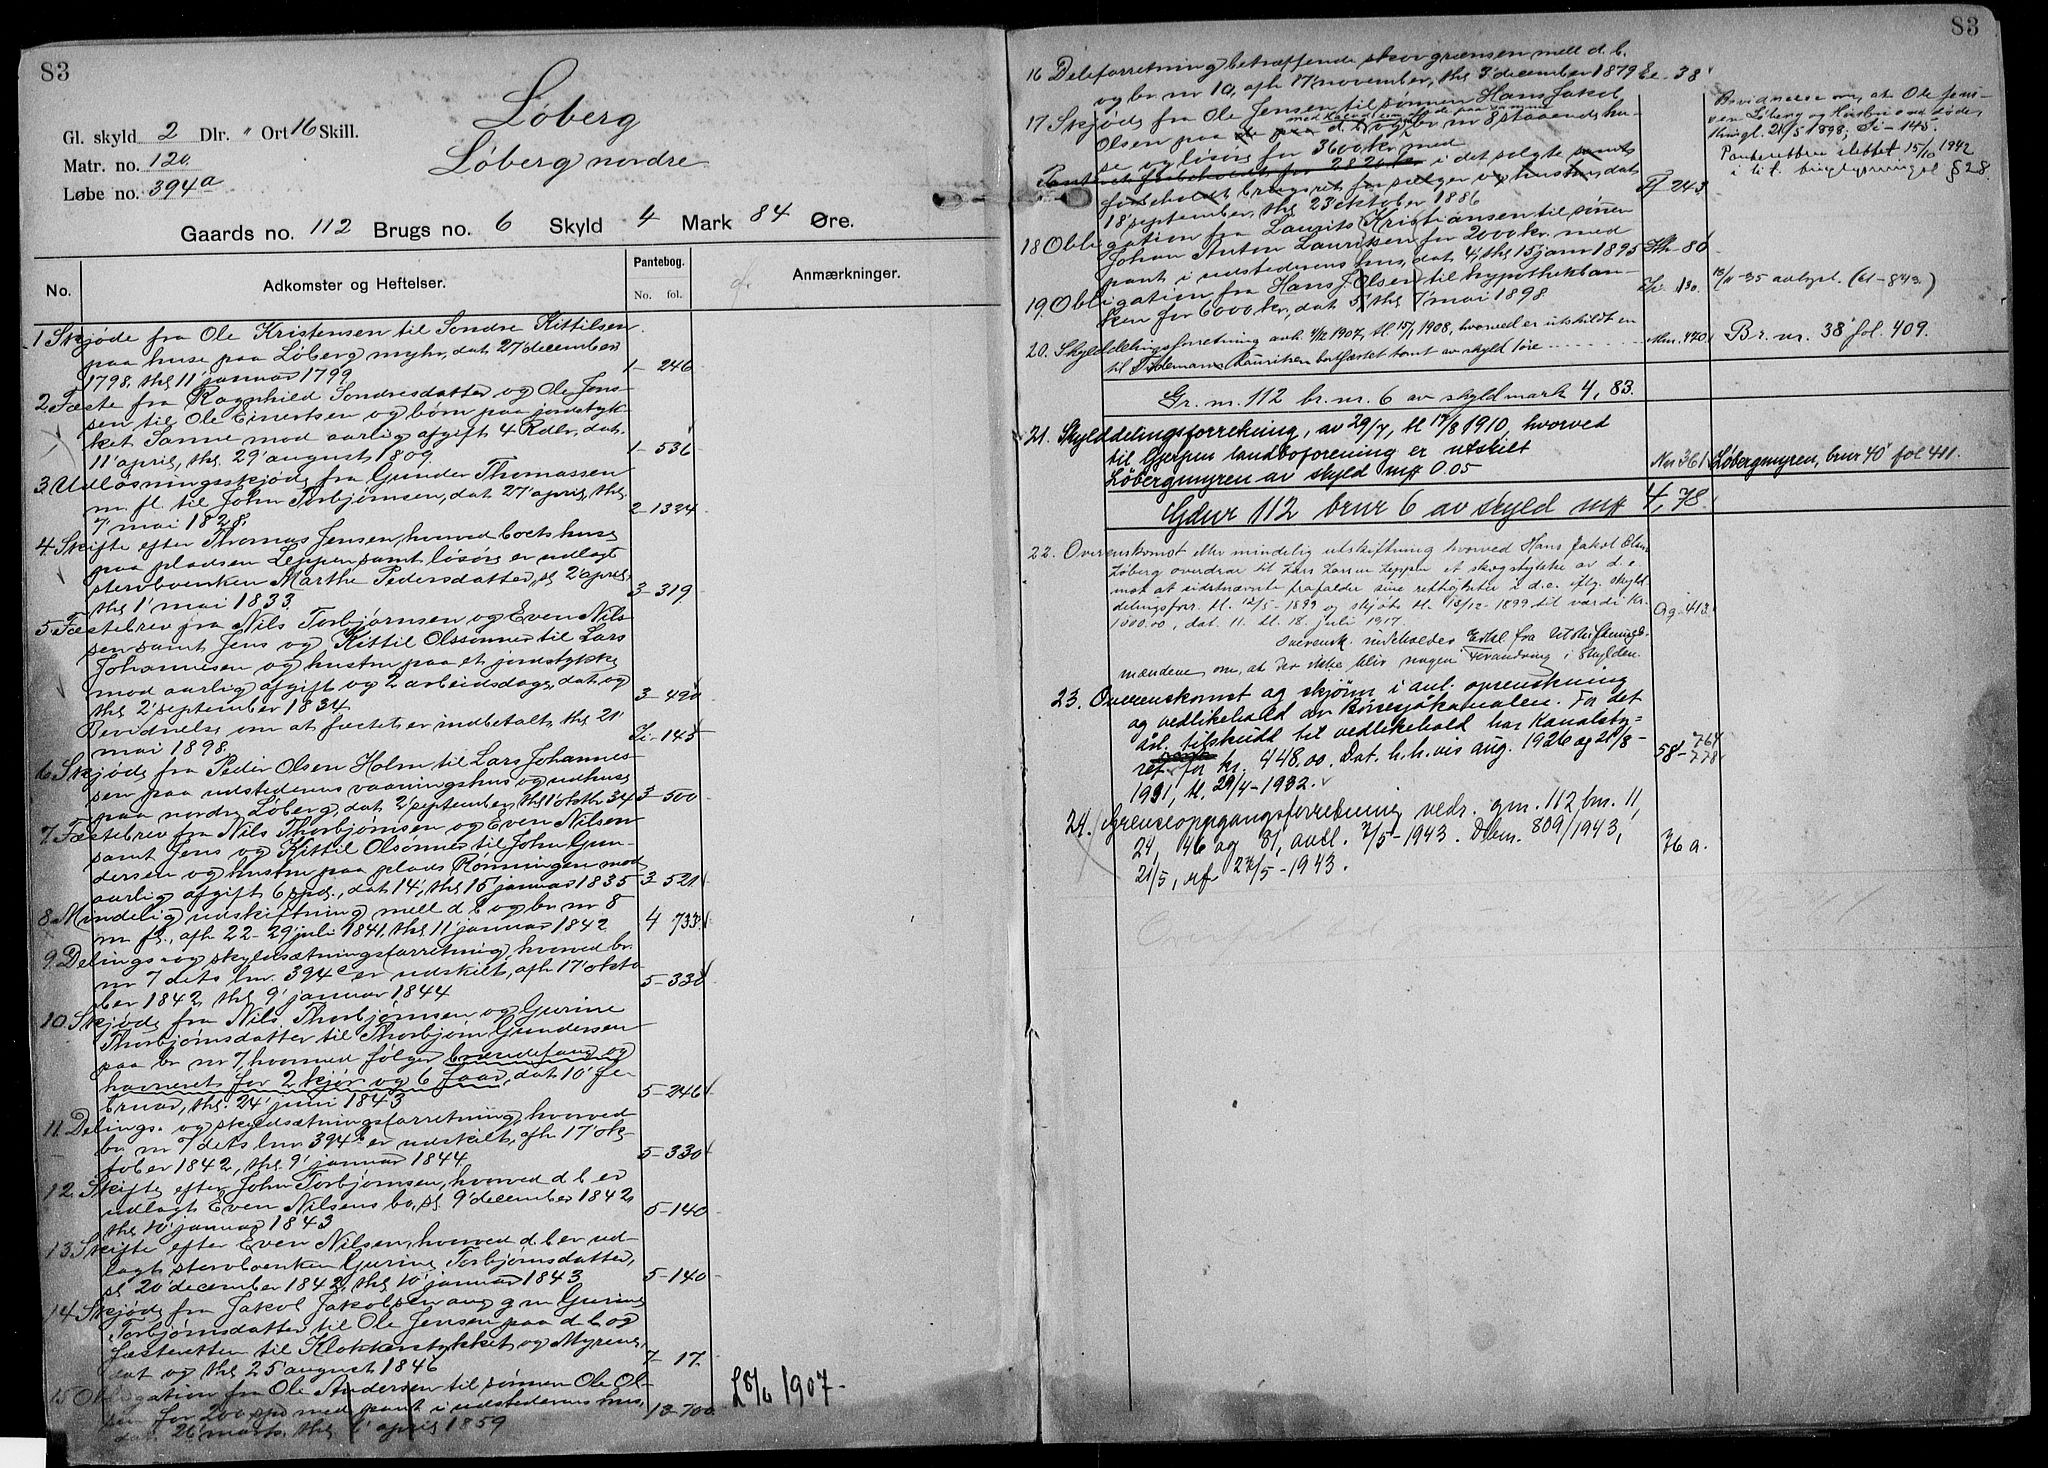 83
Løberg
Løberg nordre
Gl. skyld 2 Dlr. " Ort 16 Skill.
Matr. no. 120
Løbe no. 394a
Gaards no. 112 Brugs no. 6 Skyld 4 Mark 84 Øre.
No. Adkomster og Heftelser. Pantebog. No. fol. Anmærkninger.
1 Skjøde fra Ole Kristensen til Sondre Kittilsen
paa huse paa Løberg myhr, dat 27' december
1798, thl 11' januar 1799 1- 246
2 Fæste fra Ragnhild Sondresdatter og Ole Jens-
sen til Ole Einertsen og børn paa jordstyk-
ket Sanne mod aarlig afgift 4 Rdlr, dat.
11' april, thl 29' august 1809 1- 536
3 Udløsningsskjøde fra Gunder Thomassen
m. fl. til John Torbjørnsen, dat 27' april, thl
7' mai 1828. 2-1334
4 Skifte efter Thomas Jensen, hvorved boets huse
paa pladsen Leppen samt løsøre er udlagt
stervboenken Marthe Pedersdatter, sl 2' april,
thl 1' mai 1833. 3-319
5 Fæstebrev fra Nils Torbjørnsen og Even Nils-
sen samt Jens og Kittil Olssønner til Lars
Johannesen og hustru paa et jordstykke
mod aarlig afgift og 2 arbeidsdage, dat og
thl 2' september 1834 3-490
Bevidnelse om at fæstet er indbetalt thl 21'
mai 1898. Li-145
6 Skjøde fra Peder Olsen Holm til Lars Johannes-
sen paa udstederens vaaningshus og udhuse
paa nordre Løberg, dat 2' september, thl 1' oktbr 34 3-500
7. Fæstebrev fra Nils Thorbjørnsen og Even Nilsen
samt Jens og Kittil Olsønner til John Gun-
dersen og hustru paa plads Rønningen mod
aarlig afgift 6 spd., dat 14', thl 15' januar 1835 3-521
8 Mindelig udskiftning mell d b og br nr 8
m fl., afh 22-29' juli 1841, thl 11' januar 1842 4 733
9. Delings- og skyldsætningsforretning, hvorved br.
nr 7 dets lnr. 394c er udskilt, afh 17' okto-
ber 1842, thl 9' januar 1844 5-330
10 Skjøde fra Nils Thorbjørnsen og Gurine
Thorbjørnsdatter til Thorbjørn Gundersen
paa br nr 7, hvormed følger brændefang og
havneret for 2 kjør og 6 faar, dat 10' fe-
bruar, thl. 24' juni 1843 5-246
11. Delings- og skyldsætningsforretning, hvorved
br. nr 7 dets lnr. 394b er udskilt, afh 17' ok-
tober 1842, thl 9' januar 1844. 5-330
12 Skifte efter John Torbjørnsen, hvorved d b er
udlagt Even Nilsens bo, sl 9' december 1842
thl 10' januar 1843 5-140
13 Skifte efter Even Nilsen, hvorved d. b. er ud-
lagt stervboenken Gurine Torbjørnsdatter,
sl 20' december 1842, thl 10' januar 1843 5-140
14 Skjøde fra Jakob Jakobsen ang g m Gurine
Torbjørnsdatter til Ole Jensen paa d b og
fæsteretten til Klokkerstykket og Myrene,
dat og thl 25' august 1846 7- 17
15 Obligation fra Ole Andersen til sønnen Ole Ol-
sen for 200 spd med pant i udstederens hus,
dat 26' marts, thl 1' april 1859 13-700 L 8/6 1907-
83
16 Deleforretning betræffende skovgrænsen mell d. b.
og br. nr 10, afh 17' november, thl 3' december 1879 Ee-38
17 Skjøde fra Ole Jensen til sønnen Hans Jakob
Olsen paa d. b. og br nr 8 staaende hu-
se og løsøre for 3600 kr. med
forbeholdt for 2820 kr i det solgte samt
forbeholdt brugsret for sælger og hustru, dat
18' september, thl 23' oktober 1886 Ff 243
Bevidnelse om, at Ole Jens-
sen Løberg og Hustru ere døde,
thingl. 21/5 1898; Li-145.
Panteretten slettet 15/10 1942
§ 28.
18 Obligation fra Laurits Kristiansen til sønen
Johan Anton Lauritsen for 2000 kr. med
pant i udstederens hus, dat 4', thl 15' janr 1895 Hh-80
19. Obligation fra Hans J. Olsen til hypothekban-
ken for 6000 kr, dat 5', thl 7' mai 1898 Li-130. -35 avlyst. (61-843)
20. Skylddelingsforretning avh. 1907, tl. 15/1 1908, hvorved er utskildt en
til Tidemann Lauritsen bortfæstet tomt av skyld 1 øre Mm. 420 Br. nr. 38 fol. 409.
Gr. nr. 112 br. nr. 6 av skyld mark 4,83.
21. Skylddelingsforretning, av 29/7, tl 17/8 1910, hvorved
til Gjerpen landboforening er utskilt
Løbergmyren av skyld mk 0.05 Nn 361 Løbergmyren, brnr 40 fol 411.
Gdnr 112 brnr 6 av skyld mk 4,78.
22. Overenskomst efter mindelig utskiftning hvorved Hans Jakob Olsen
Løberg overdrar til Lars Larsen Leppen et skogstykke av d. e.
mot at sidstnævnte frafalder sine rettigheter i d. e. iflg. skyld-
delingsforr. tl. 12/5-1899 og skjøte tl. 13/12-1899 til værdi kr.
1000.00, dat. 11. tl. 18. juli 1917. Qq-413
Overensk. indeholdes Erkl. fra Utskiftnings-
mændene om, at der ikke blir nogen Forandring i Skylden.
23. Overenskomst og skjønn i anl. oprenskning
og vedlikehold av Børsesjøkanalen. For det
årl. tilskudd til vedlikehold har Kanalsty-
ret for kr. 448.00. Dat. h.h.vis aug. 1926 og 21/8-
1931, tl. 29/4-1932. 58-764 778
24. Grenseoppgangsforretning vedr. gnr. 112 bnr. 11,
24, 46 og 81, avsl. 7/5-1943. Dbnr. 809/1943,
21/5, ref. 22/5-1943. 76 a.